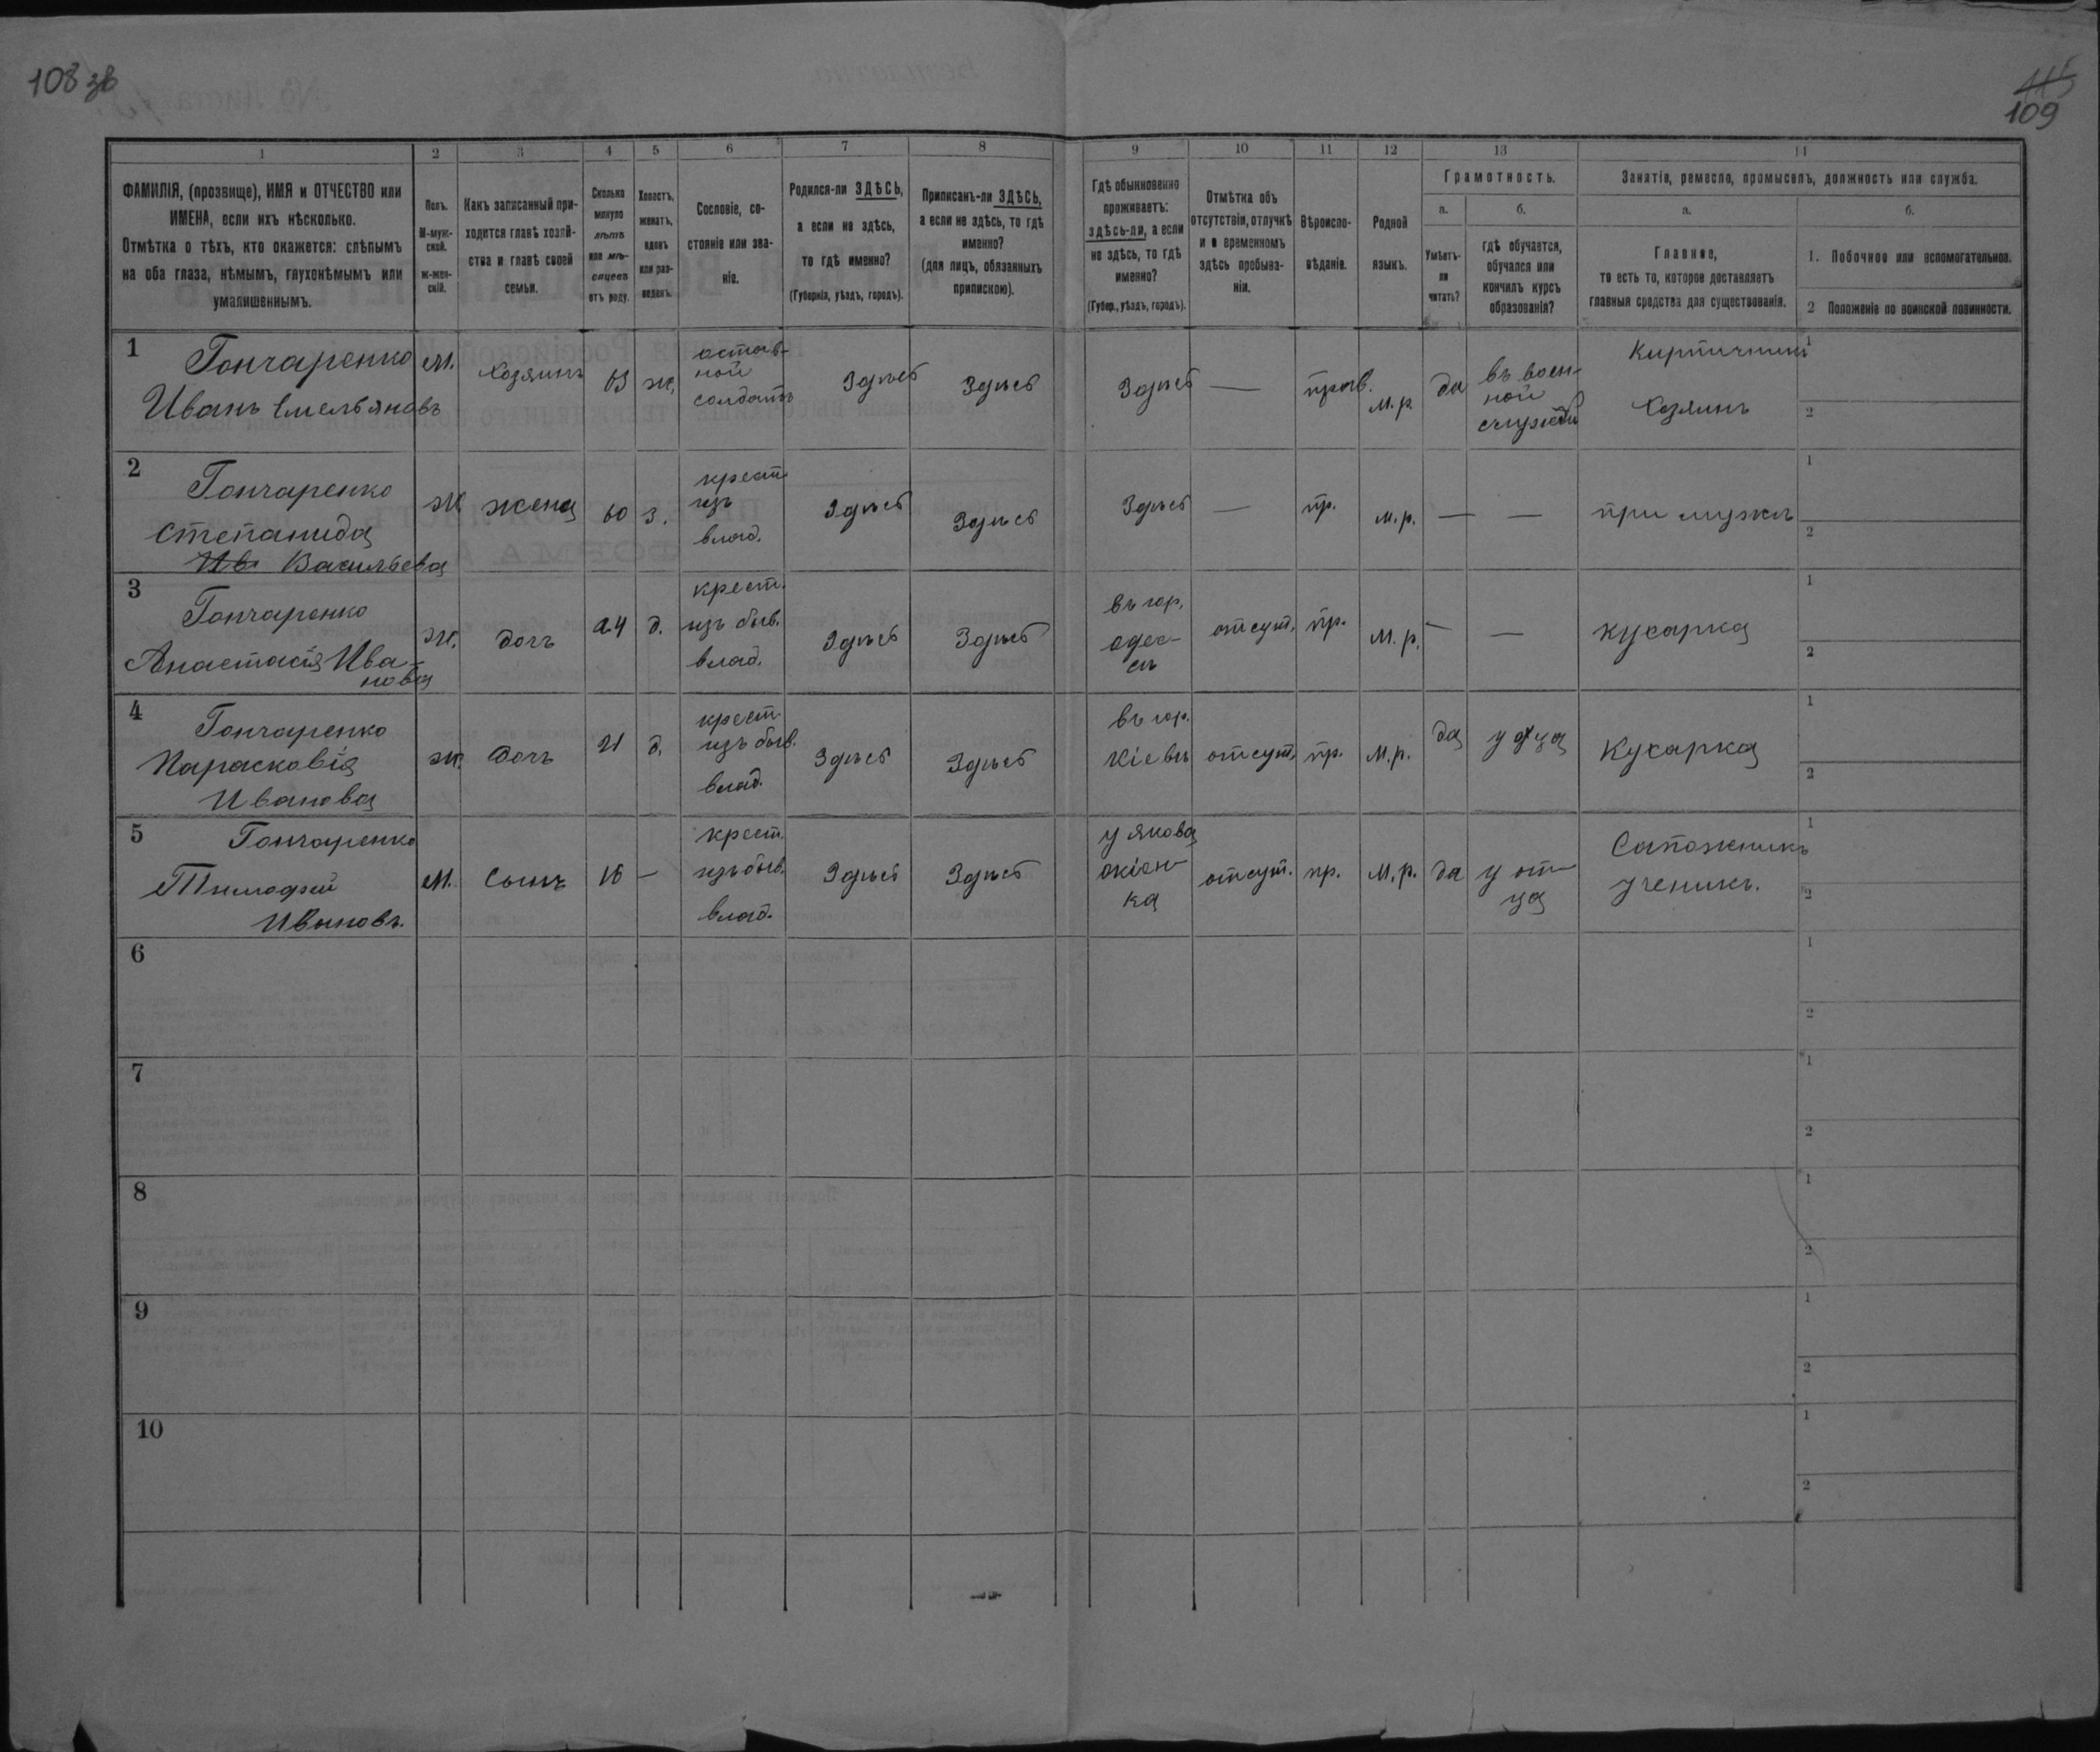 108 зв
115
109
1
2
3
4
5
6
7
8
9
10
11
12
13
14
ФАМИЛІЯ, (прозвище), ИМЯ и ОТЧЕСТВО или
ИМЕНА, если ихъ нѣсколько.
Отмѣтка о тѣхъ, кто окажется: слѣпымъ
на оба глаза, нѣмымъ, глухонѣмымъ или
умалишеннымъ.
Полъ.
М-муж-
ской.
Ж-жен-
скій.
Какъ записанный при-
ходится главѣ хозяй-
ства и главѣ своей
семьи.
Сколько
минуло
лѣтъ
или мѣ-
сяцевъ
отъ роду.
Холостъ,
женатъ,
вдовъ
или раз-
веденъ.
Сословіе, со-
стояніе или зва-
ніе.
Родился-ли ЗДѢСЬ,
а если не здѣсь,
то гдѣ именно?
(Губернія, уѣздъ, городъ).
Приписанъ-ли ЗДѢСЬ,
а если не здѣсь, то гдѣ
именно?
(для лицъ, обязанныхъ
припискою).
Гдѣ обыкновенно
проживаетъ:
здѣсь-ли, а если
не здѣсь, то гдѣ
именно?
(Губер., уѣздъ, городъ).
Отмѣтка объ
отсутствіи, отлучкѣ
и о временномъ
здѣсь пребыва-
ніи.
Вѣроиспо-
вѣданіе.
Родной
языкъ.
Грамотность.
а.
б.
Умѣетъ-
ли
читать?
гдѣ обучается,
обучался или
кончилъ курсъ
образованія?
Занятіе, ремесло, промыселъ, должность или служба.
а.
б.
Главное,
то есть то, которое доставляетъ
главныя средства для существованія.
1. Побочное или вспомогательное.
2 Положеніе по воинской повинности.
1
Гончаренко
Иванъ Емельяновъ
М.
Хозяинъ
63
ж.
отстав-
ной
солдатъ
Здѣсь
Здѣсь
Здѣсь
—
прав.
м.р.
да
въ воен-
ной
службѣ
Кирпичникъ
Хозяинъ
1
2
2
Гончаренко
Степанида
Ив Васильева
Ж
жена
60
з.
крест
изъ
влад.
Здѣсь
Здѣсь
Здѣсь
—
пр.
м.р.
—
—
при мужѣ
1
2
3
Гончаренко
Анастасія Ива-
нова
ж.
дочь
24
д.
крест.
изъ быв.
влад.
Здѣсь
Здѣсь
въ гор.
одес-
сѣ
отсут.
пр.
м.р.
—
—
кухарка
1
2
4
Гончаренко
Парасковія
Иванова
ж.
дочь
21
д.
крест.
изъ быв.
влад.
Здѣсь
Здѣсь
въ гор.
Кіевѣ
отсут.
пр.
м.р.
да
Кухарка
1
2
5
Гончаренко
Тимофей
Ивановъ.
М.
Сынъ
16
—
крест.
изъ быв.
влад.
Здѣсь
Здѣсь
у якова
ка
отсут.
пр.
м.р.
да
у от-
ца
Сапожникъ
ученикъ.
1
2
6
1
2
7
1
2
8
1
2
9
1
2
10
1
2